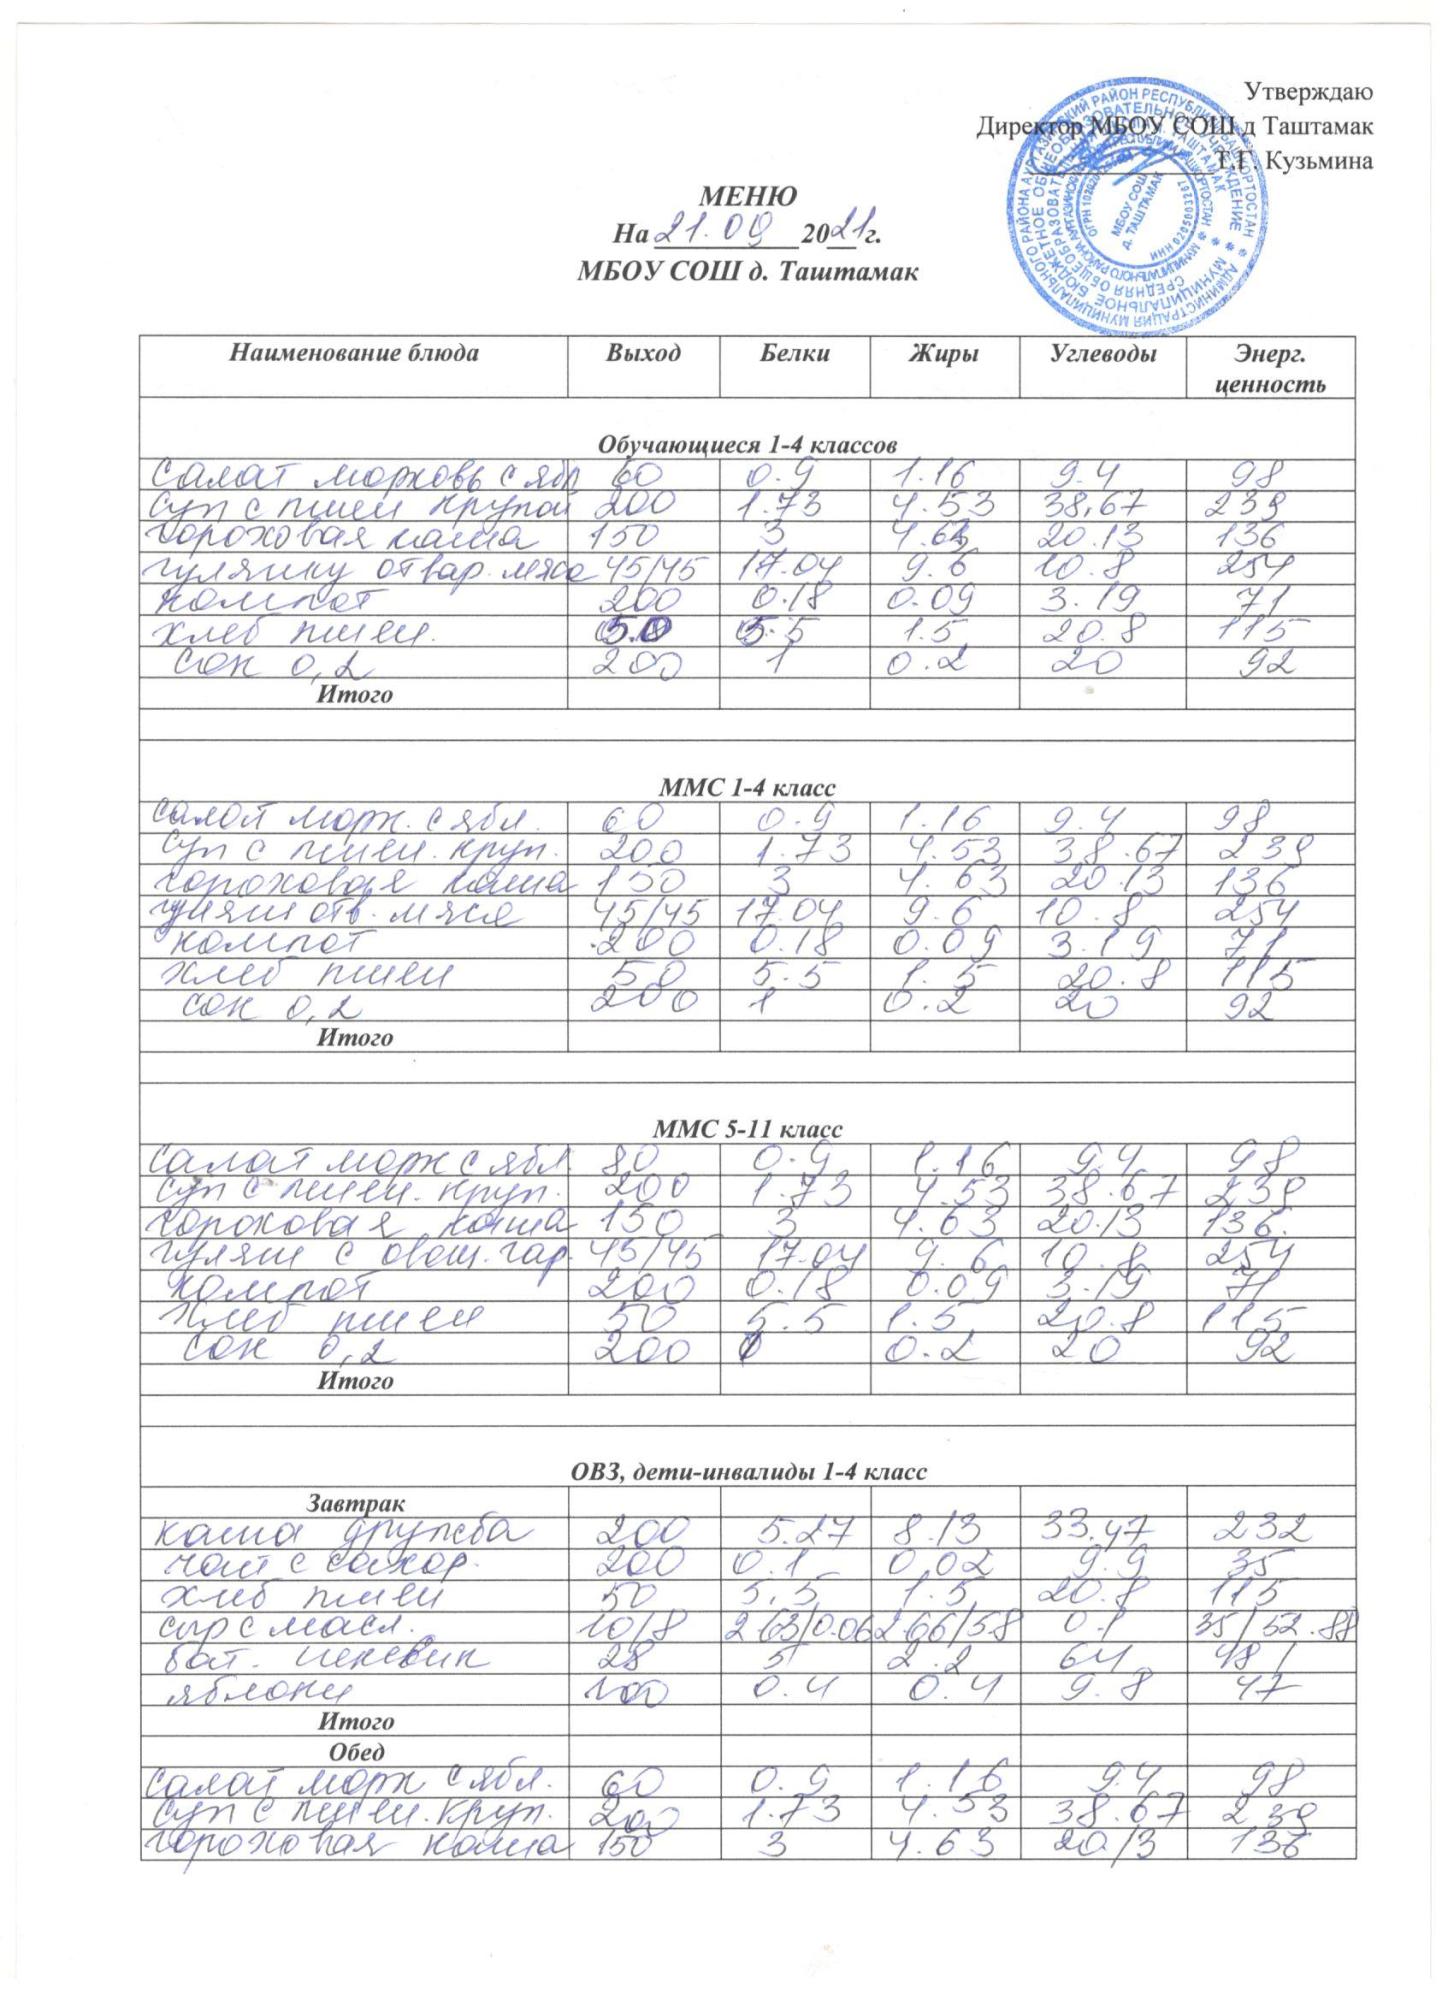 Утверждаю
Директор МБОУ СОШ д Таштамак
Т.Г. Кузьмина
МБОУ СОШ
Д. ТАШТАМАК
МЕНЮ
На 21.09 2021 г.
МБОУ СОШ д. Таштамак
Наименование блюда Выход Белки Жиры Углеводы Энерг. ценность
Обучающиеся 1-4 классов
салат морковь с ябл 60 0.9 1.16 9.4 98
суп с пшен крупой 200 1.73 4.53 38,67 239
гороховая каша 150 3 4.63 20.13 136
отвар. мяса 45/45 17.04 9.6 10.8 254
компот 200 0.18 0.09 3.19 71
хлеб пшен. 50 5.5 1.5 20.8 115
сок 0,2 200 1 0.2 20 92
Итого
ММС 1-4 класс
салат морк. с ябл. 60 0.9 1.16 9.4 98
суп с пшен. круп. 200 1.73 4.53 38.67 239
гороховая каша 150 3 4.63 20.13 136
гуляш отв. мяса 45/45 17.04 9.6 10.8 254
компот 200 0.18 0.09 3.19 71
хлеб пшен 50 5.5 1.5 20.8 115
сок 0,2 200 1 0.2 20 92
Итого
ММС 5-11 класс
салат морк с ябл. 80 0.9 1.16 9.4 98
суп с пшен. круп. 200 1.73 4.53 38.67 239
гороховая каша 150 3 4.63 20.13 136.
гуляш с овощ. гар. 45/45 17.04 9.6 10.8 254
компот 200 0.18 0.09 3.19 71
хлеб пшен 50 5.5 1.5 20.8 115
сок 0,2 200 1 0.2 20 92
Итого
ОВЗ, дети-инвалиды 1-4 класс
Завтрак
каша дружба 200 5.27 8.13 33.47 232
чай с сахар. 200 0.1 0,02 9.9 35
хлеб пшен 50 5,5 1.5 20.8 115
сыр с масл. 10/8 2.63/0.06 2.66/58 0.1 35/52.88
бат. 28 5 2.2 64 48
яблоки 100 0.4 0.4 9.8 47
Итого
Обед
салат морк с ябл. 60 0.9 1.16 9.4 98
суп с пшен. круп. 200 1.73 4.53 38.67 239
гороховая каша 150 3 4.63 20.13 136